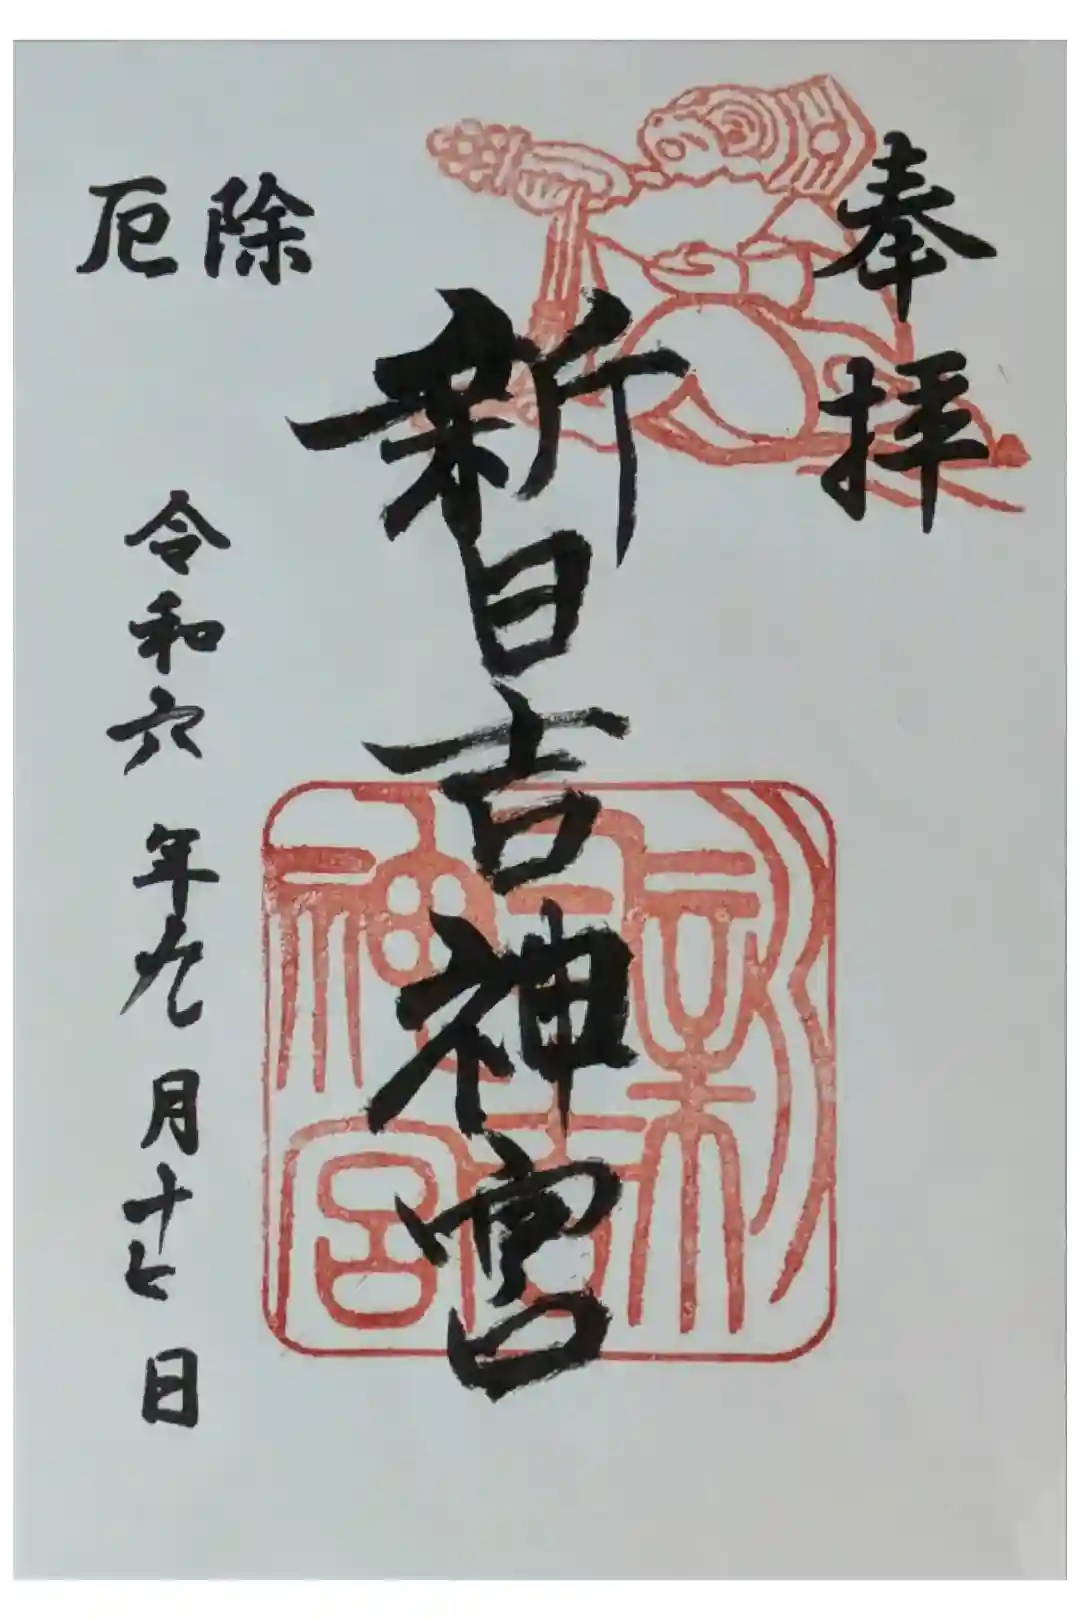 奉拝
新日吉神宮
新日吉神宮
除厄
令和六年九月十七日